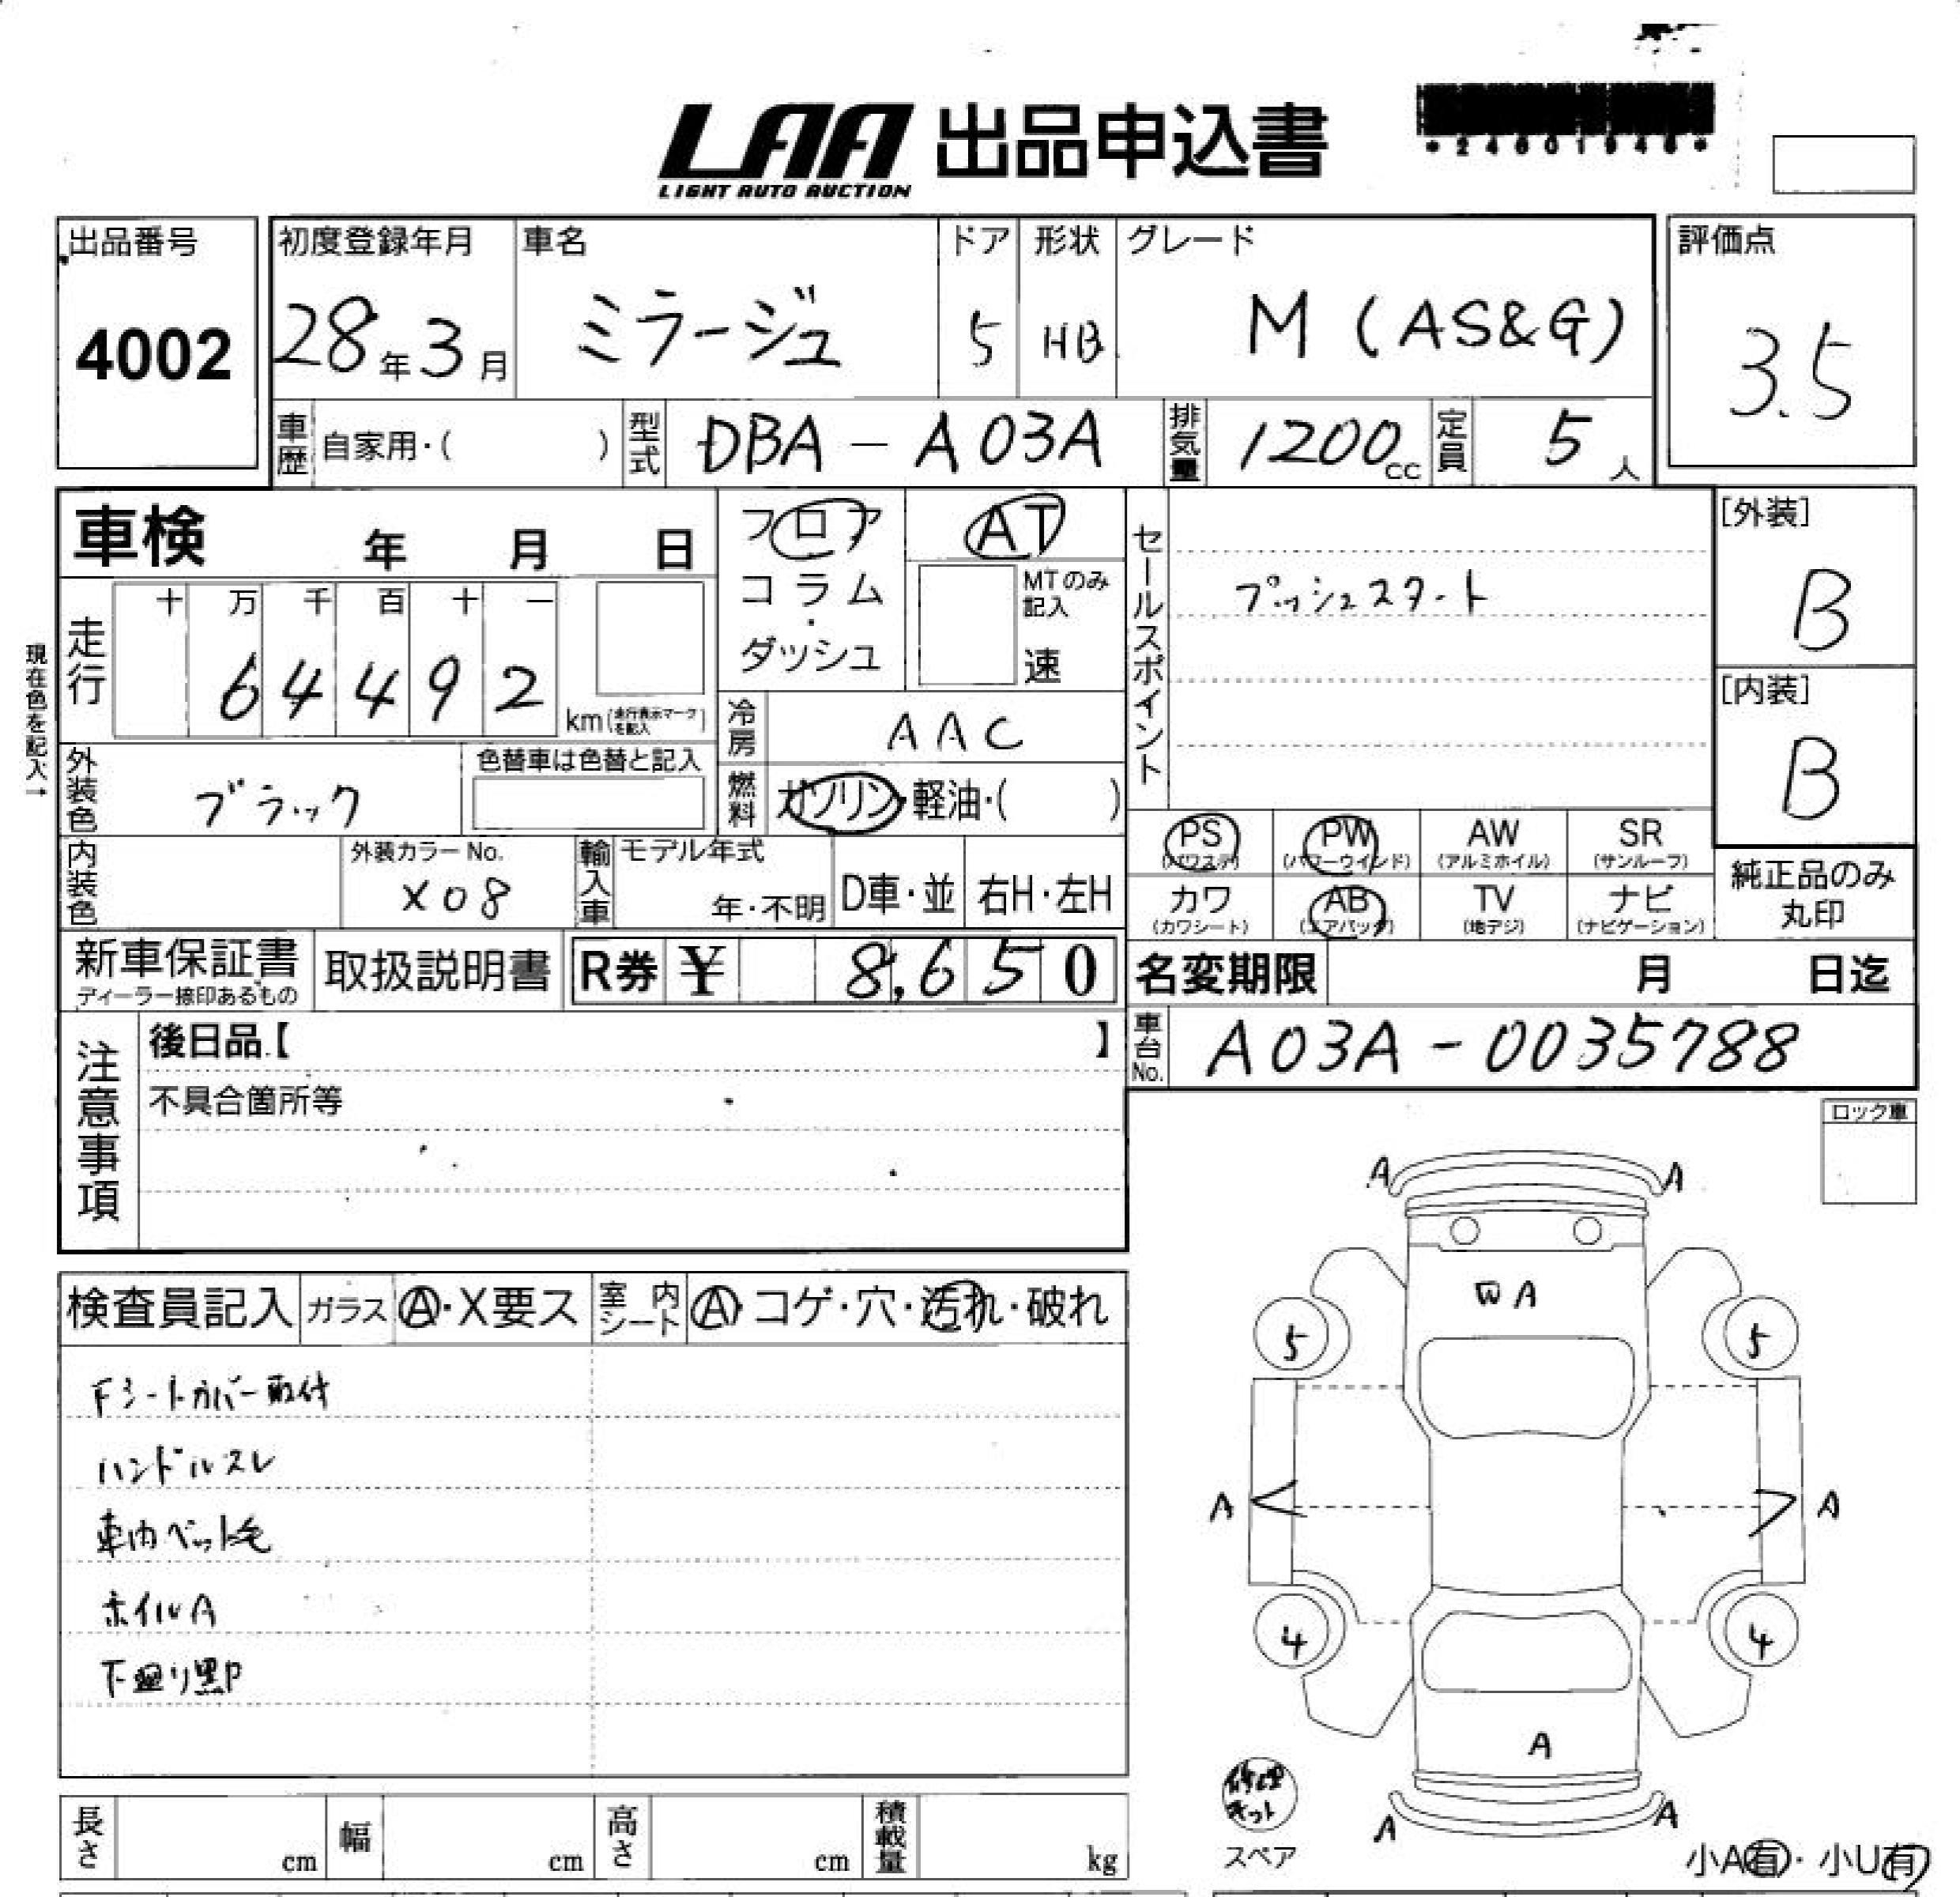 LAA 出品申込書
LIGHT AUTO AUCTION
*24601946*
出品番号
4002
初度登録年月
28年3月
車名
ミラージュ
ドア
5
形状
HB
グレード
M (AS&G)
評価点
3.5
車歴
自家用・( )
型式
DBA-A03A
排気量
1200cc
定員
5人
車検 年 月 日
フロア
コラム
・
ダッシュ
AT
MTのみ記入
速
現在色を記入→
走行
十 万 千 百 十 一
6 4 4 9 2
km(走行表示マークを記入)
冷房
AAC
外装色
ブラック
色替車は色替と記入
燃料
ガソリン・軽油・( )
内装色
外装カラーNo.
X08
輸入車
モデル年式
年・不明
D車・並
右H・左H
セールスポイント
プッシュスタート
[外装]
B
[内装]
B
PS
(パワステ)
PW
(パワーウインド)
AW
(アルミホイル)
SR
(サンルーフ)
カワ
(カワシート)
AB
(エアバッグ)
TV
(地デジ)
ナビ
(ナビゲーション)
純正品のみ
丸印
新車保証書
ディーラー捺印あるもの
取扱説明書
R券 ¥ 8,650
名変期限 月 日迄
車台No.
A03A-0035788
注意事項
後日品【 】
不具合箇所等
ロック車
検査員記入
ガラス
A・X要ス
室内シート
A・コゲ・穴・汚れ・破れ
Fシートカバー取付
ハンドルスレ
車内ペット毛
ホイルA
下廻り黒P
A A
A
5 5
A A
4 4
A
A A
修理キット
スペア
小A有・小U有
長さ cm
幅 cm
高さ cm
積載量 kg